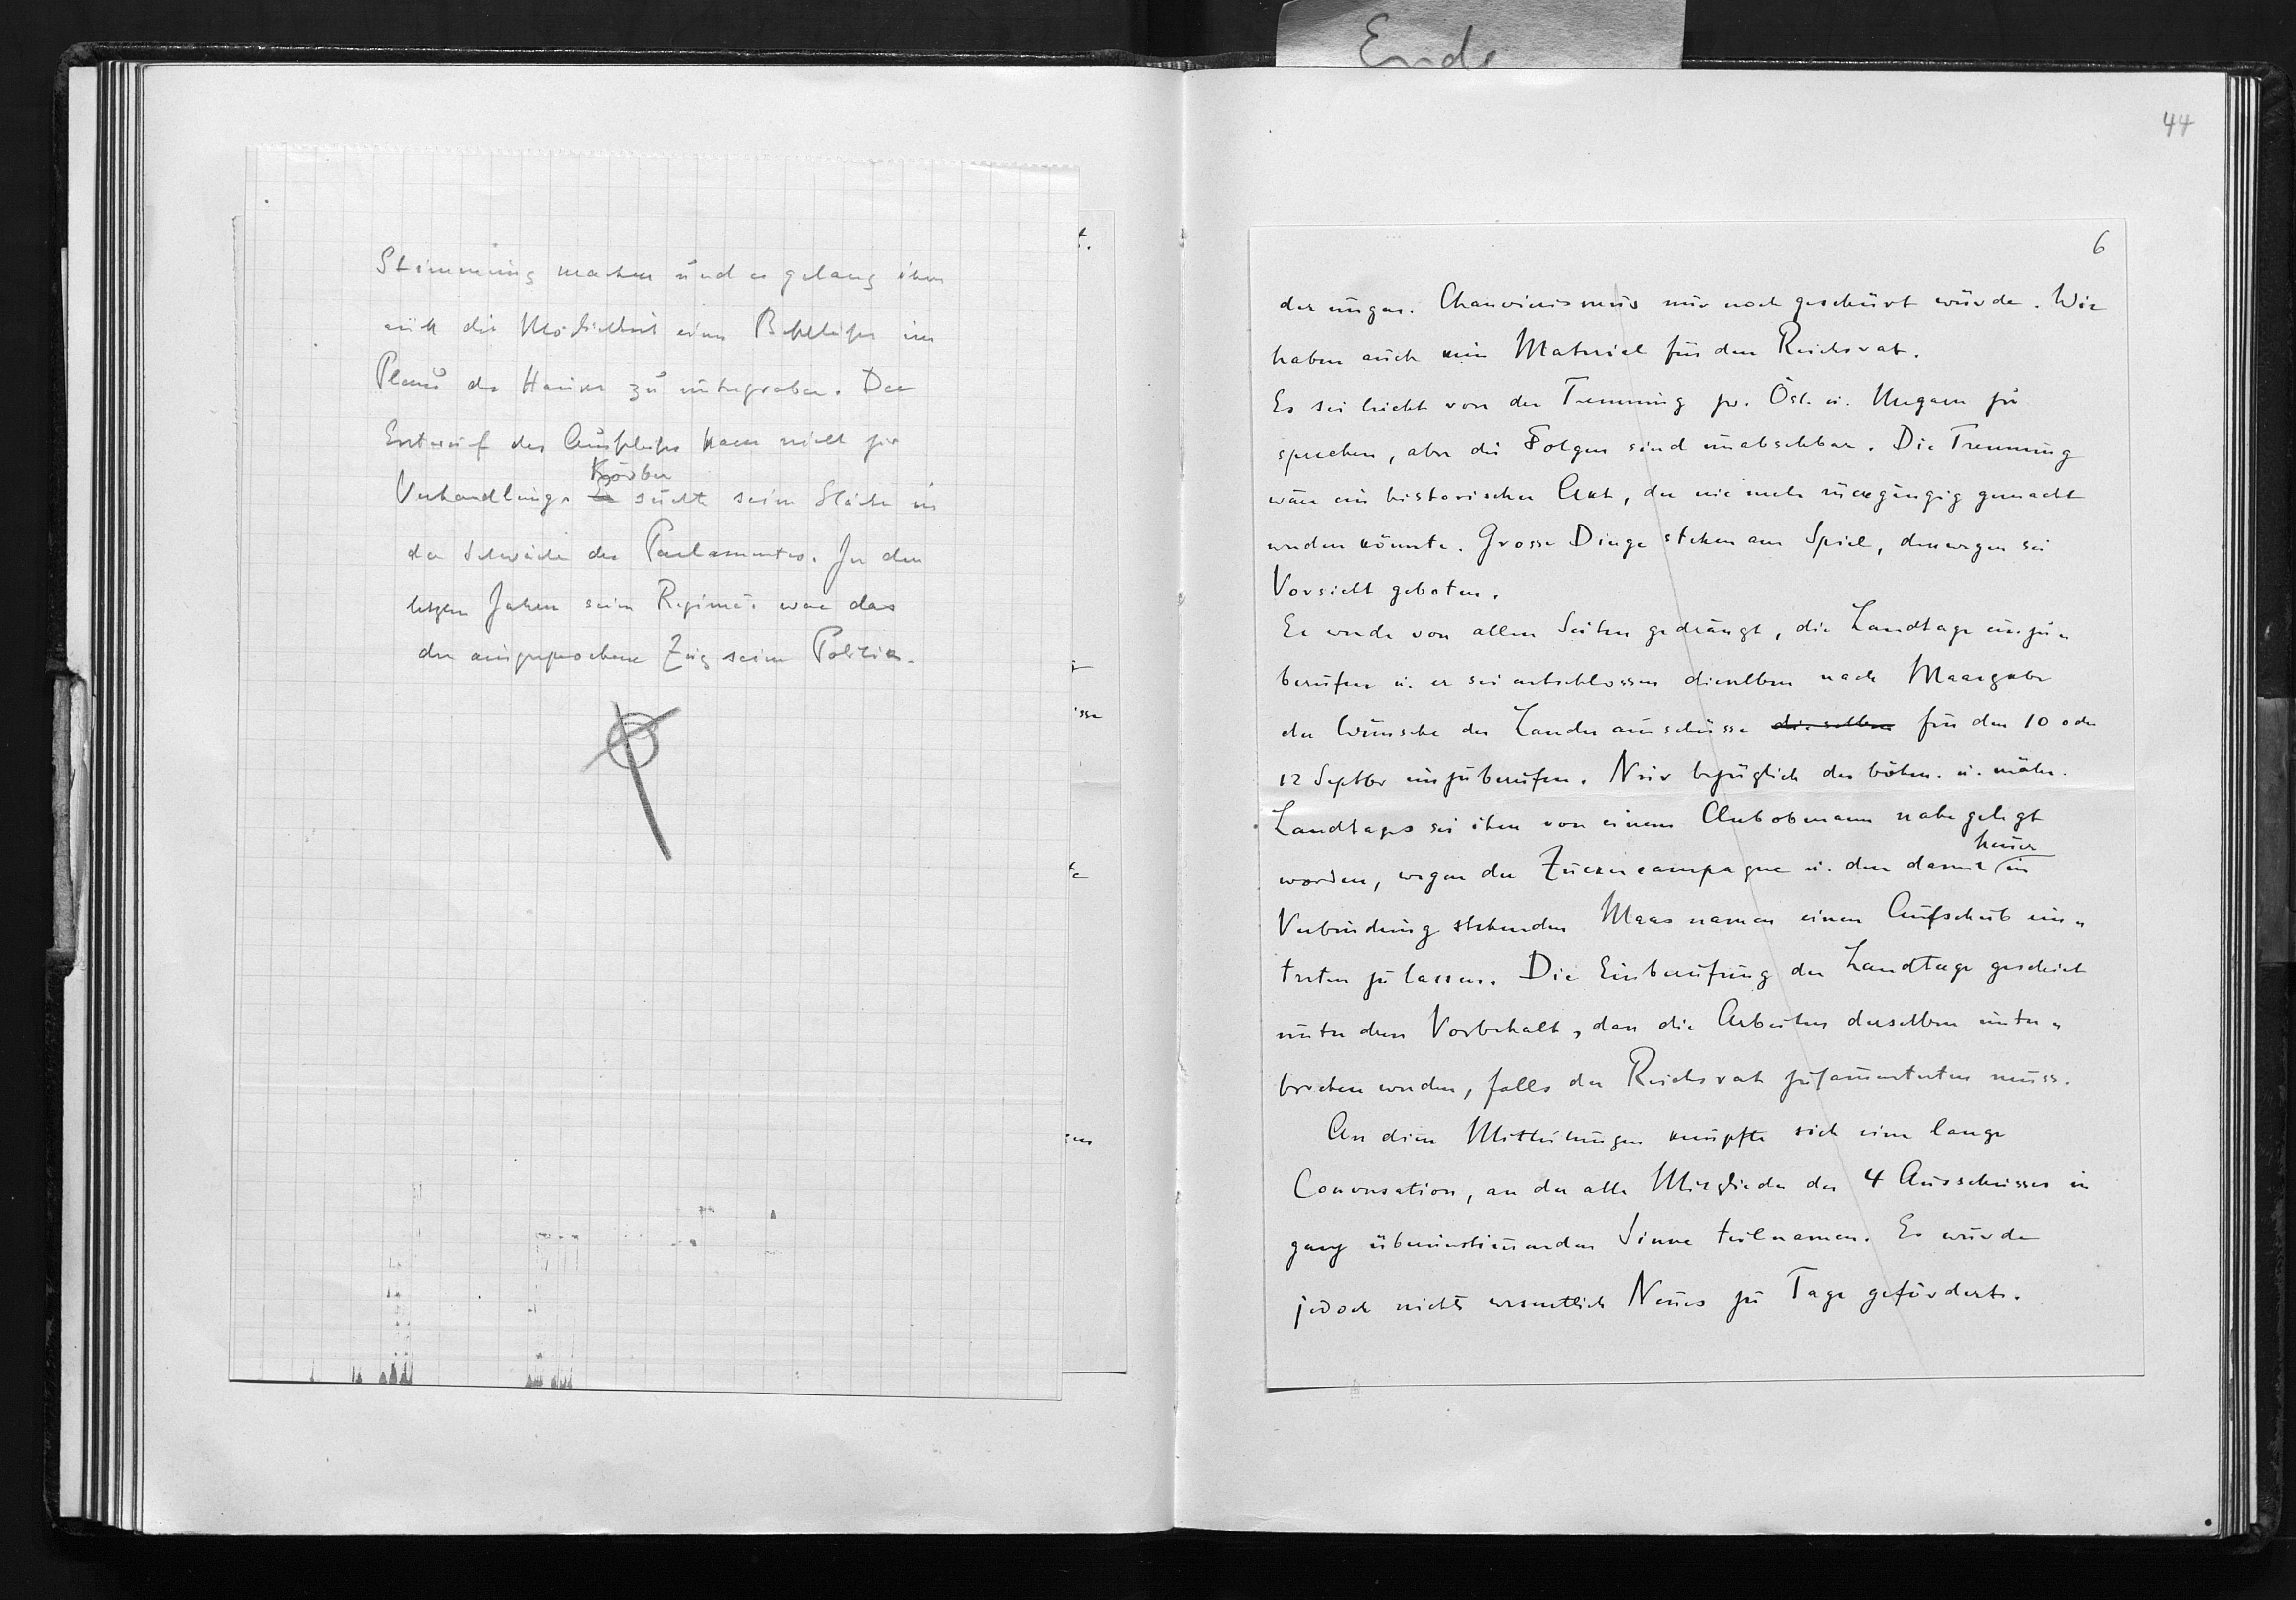 Ende
Stimmung machen und es gelang ihm
auch die Möglichkeit eines Beschlußes im
Plenū des Hauses zu untergraben. Der
Entwurf des Ausschußes kam nicht zur
Körber
Verhandlung. Er suchte seine Stärke in
der Schwäche des Parlamentes. In den
letzten Jahren seines Regimes war das
der ausgesprochene Zug seiner Politik.
44
6
der ungar. Chauvinismus nur noch geschürt würde. Wir
haben auch kein Material für den Reichsrat.
Es sei leicht von der Trennung zw. Öst. u. Ungarn zu
sprechen, aber die Folgen sind unabsehbar. Die Trennung
wäre ein historischer Akt, der nie mehr rückgängig gemacht
werden könnte. Grosse Dinge stehen am Spiel, deswegen sei
Vorsicht geboten.
Er werde von allen Seiten gedrängt, die Landtage einzu-
berufen u. er sei entschlossen dieselben nach Maasgabe
der Wünsche der Landesausschüsse dieselben für den 10 oder
12 Septbr einzuberufen. Nur bezüglich des böhm. u. mähr.
Landtages sei ihm von einem Clubobmann nahe gelegt
heuer
worden, wegen der Zuckercampagne u. den damit in
Verbindung stehenden Maasnamen einen Aufschub ein-
treten zu lassen. Die Einberufung der Landtage geschieht
unter dem Vorbehalt, dass die Arbeiten derselben unter-
brochen werden, falls der Reichsrat zusam̅entreten muss.
An diese Mittheilungen knüpfte sich eine lange
Conversation, an der alle Mitglieder der 4 Ausschüsse in
ganz übereinstim̅enden Sinne teilnamen. Es wurde
jedoch nichts wesentlich Neues zu Tage gefördert.